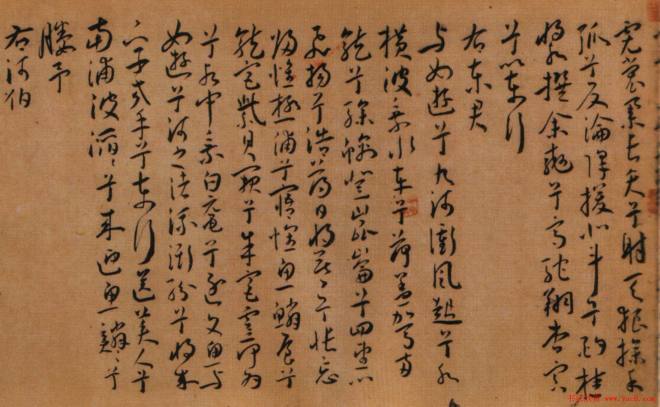 霓裳舉長矢兮射天狼操余
弧兮反淪降援北斗兮酌桂
漿撰余轡兮高馳翔杳冥
兮以東行
右東君
與女遊兮九河衝風起兮水
橫波乘水車兮荷蓋駕兩
龍兮驂螭登崐崙兮四望心
飛揚兮浩蕩日將暮兮悵忘
歸惟極浦兮寤懷魚鱗屋兮
龍堂紫貝闕兮朱宮靈何為
兮水中乘白黿兮逐文魚與
女遊兮河之渚流澌紛兮將來
下子交手兮東行送美人兮
南浦波滔〻兮來迎魚鱗〻兮
媵予
右河伯